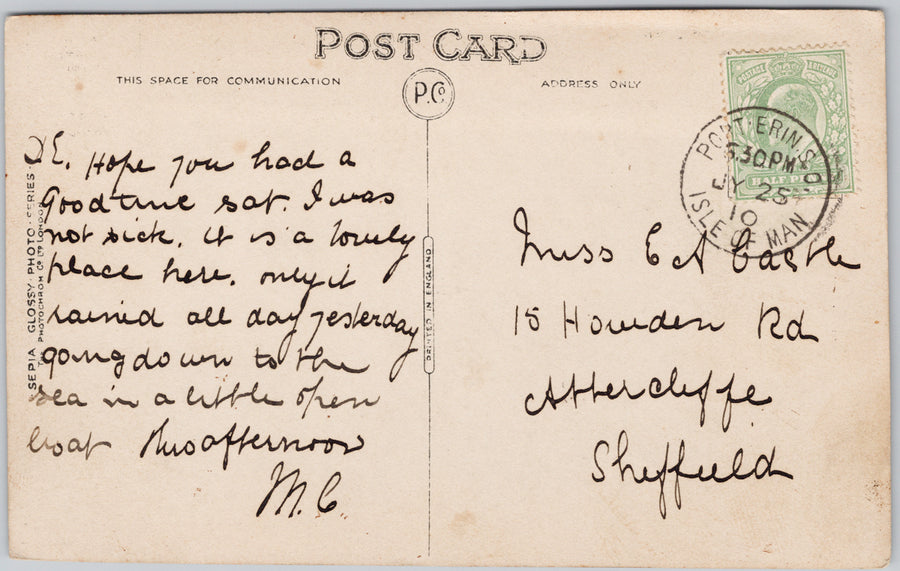 POST CARD
THIS SPACE FOR COMMUNICATION
P.Co
ADDRESS ONLY
D E. Hope you had a
good time sat. I was
not sick. it is a lovely
place here. only it
rained all day yesterday
going down to the
sea in a little open
boat this afternoon
M. C.
SEPIA GLOSSY-PHOTO-SERIES
PHOTOCHROM CO LTD LONDON
PRINTED IN ENGLAND
POSTAGE
HALF
PORT-ERIN S.O
6 30 PM
JY 25
10
ISLE OF MAN
Miss E A Castle
15 Howden Rd
Attercliffe
Sheffield